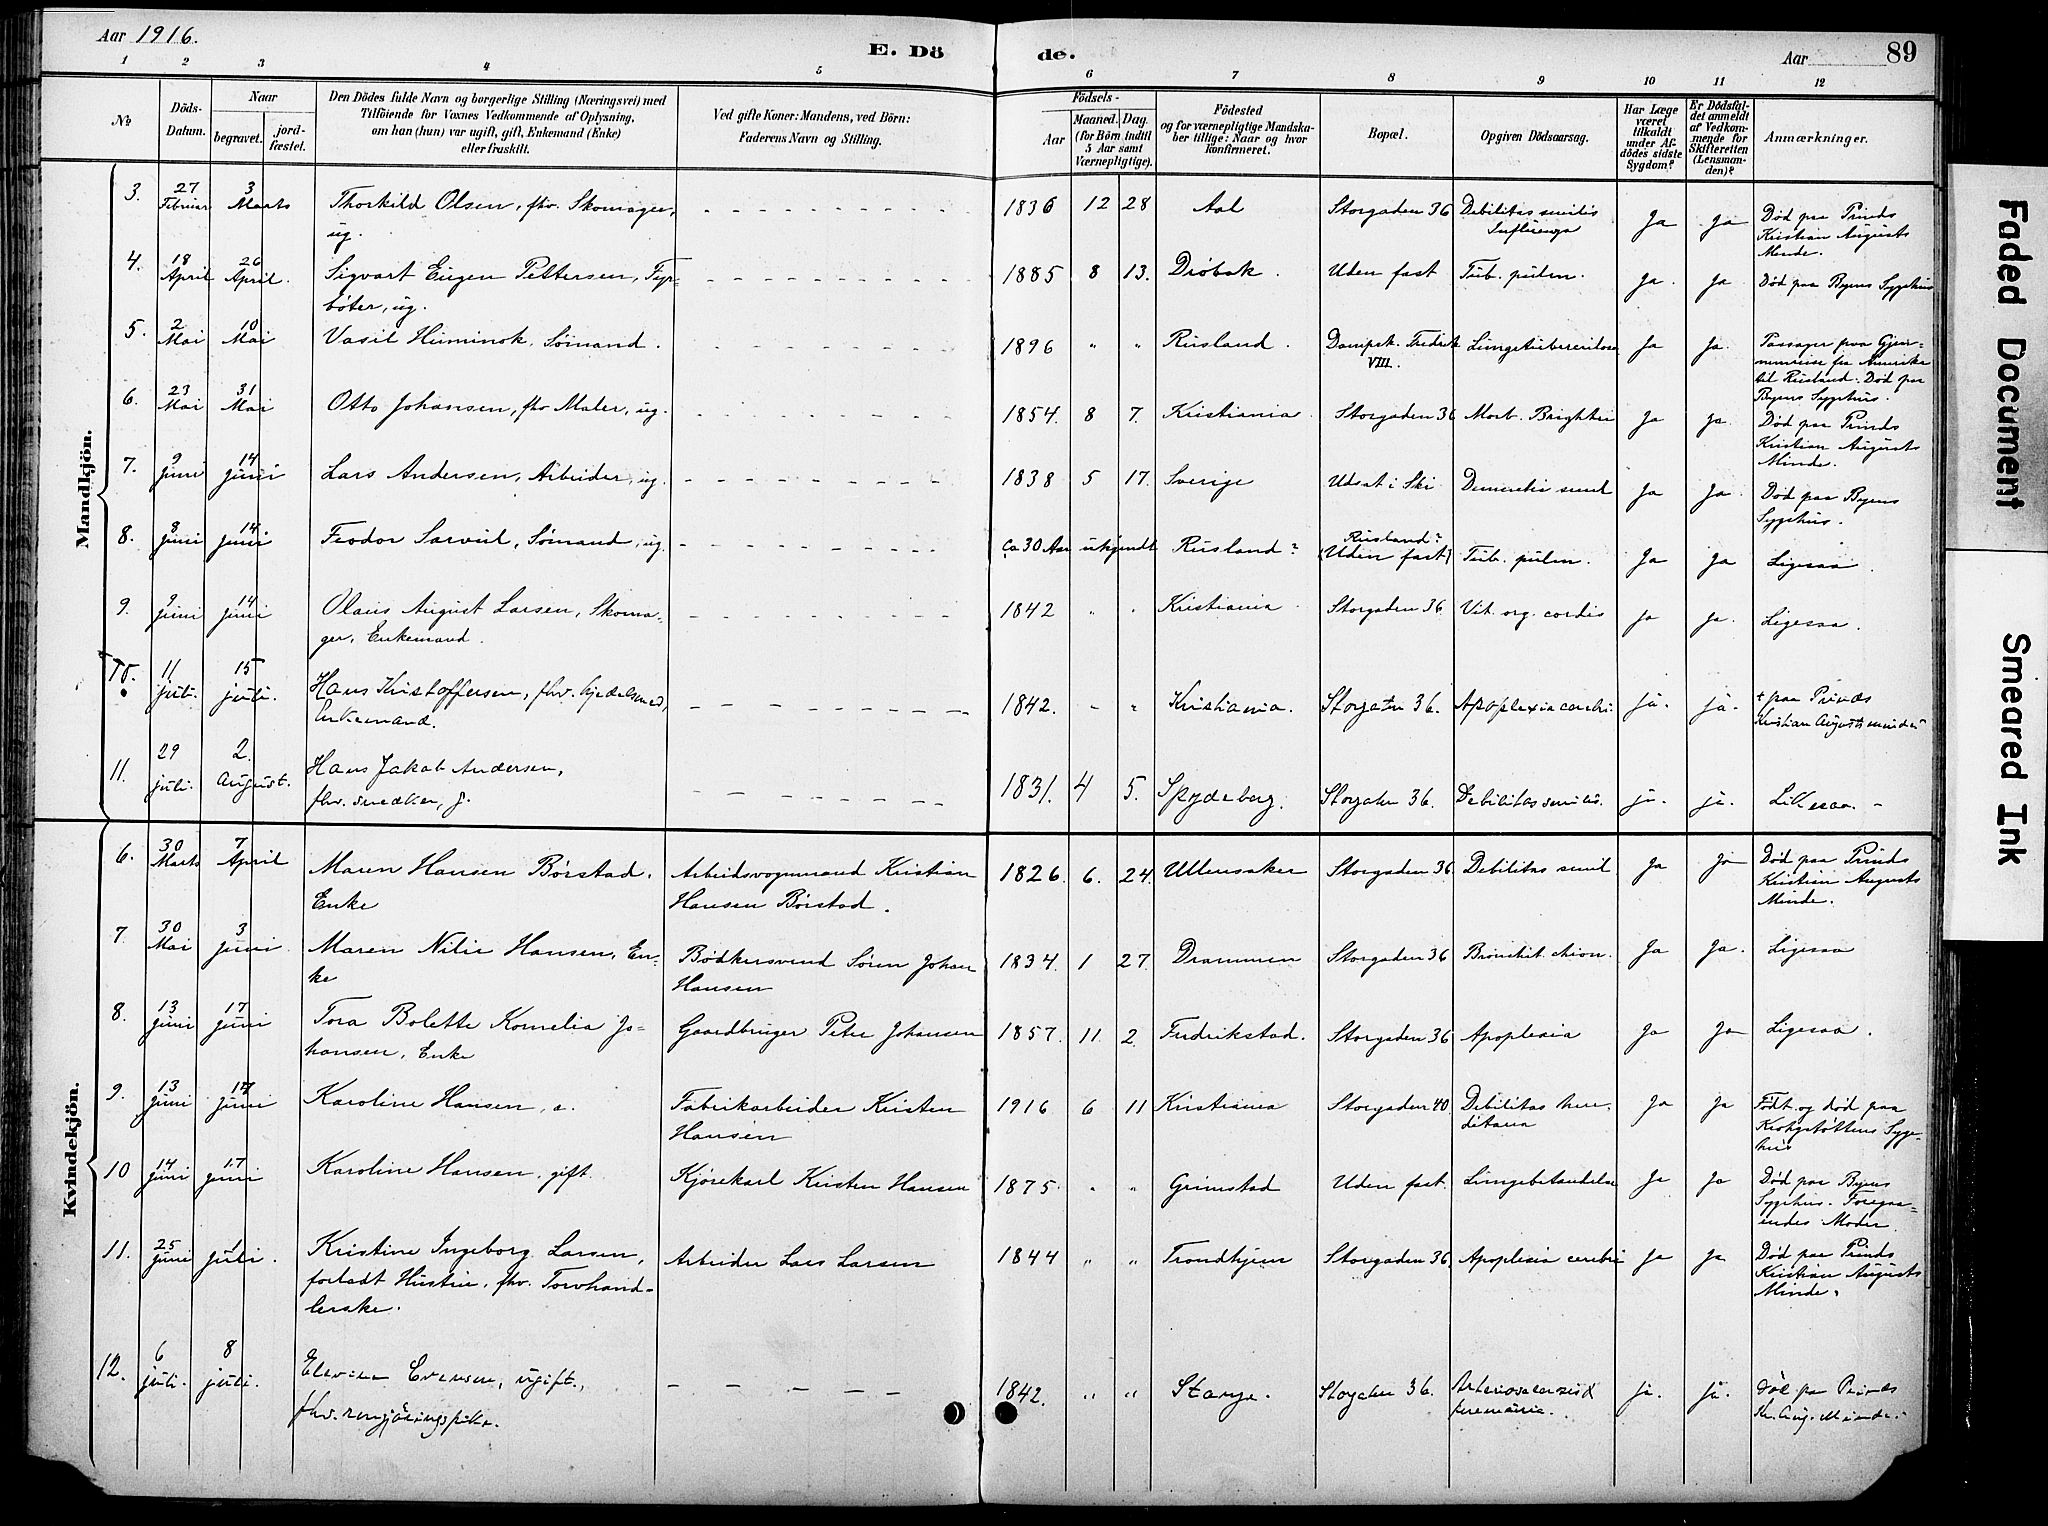 Aar 1916.
E. Dö
de.
Aar
89
1
2
3
4
5
6
7
8
9
10
11
12
No
Döds-
Datum.
Naar
begravet.
jord-
fæstet.
Den Dödes fulde Navn og borgerlige Stilling (Næringsvei) med
Tilföiende for Voxnes Vedkommende af Oplysning,
om han (hun) var ugift, gift, Enkemand (Enke)
eller fraskilt.
Ved gifte Koner: Mandens, ved Börn:
Faderens Navn og Stilling.
Födsels-
Aar
Maaned. Dag.
(for Börn indtil
5 Aar samt
Værnepligtige).
Födested
og for værnepligtige Mandska-
ber tillige: Naar og hvor
konfirmeret.
Bopæl.
Opgiven Dödsaarsag.
Har Læge
været
tilkaldt
under Af-
dödes sidste
Sygdom?
Er Dödsfal-
det anmeldt
af Vedkom-
mende for
Skifteretten
(Lensman-
den)?
Anmærkninger.
Mandkjön.
3. 27 Februar 3 Marts Thorkild Olsen, fhv. Skomager, ug. 1836 12 28 Aal Storgaden 36 Debilitas senilis Influenza Ja Ja Död paa Prinds Kristian Augusts Minde.
4. 18 April 26 April. Sigvart Eugen Pettersen, Fyrböter, ug. 1885 8 13. Dröbak. Uden fast Tub. pulm. Ja. Ja. Död paa Byens Sygehus
5. 2 Mai 10 Mai Vasil Huminok, Sömand. 1896 " " Rusland. Dampsk. Fredrik VIII. Lungetuberculose Ja Ja. Passager paa Gjennemreise fra Amerika til Rusland. Död paa Byens Sygehus.
6. 23 Mai 31 Mai Otto Johansen, fhv Maler, ug. 1854. 8 7. Kristiania. Storgaden 36 Morb. Brightii Ja Ja. Död paa Prinds Kristian Augusts Minde.
7. 9 Juni 14 Juni Lars Andersen, Arbeider, ug. 1838 5 17. Sverige Udsat i Ski Dementia senil Ja Ja. Död paa Byens Sygehus.
8. 8 Juni 14 Juni Feodor Sarvul, Sömand, ug. ca 30 Aar ukjendt Rusland? Rusland? (Uden fast) Tub. pulm. Ja Ja Ligesaa.
9. 9 Juni 14 Juni Olaus August Larsen, Skomager, Enkemand. 1842 " " Kristiania. Storgaden 36 Vit. org. cordis Ja Ja. Ligesaa.
10. 11 juli. 15 juli. Hans Kristoffersen, fhv. kjedelsmed, Enkemand. 1842. - " Kristiania. Storgatn 36. Apoplexia cerebri ja. ja. + paa Prinds Kristian Augusts minde
11. 29 juli. 2. August. Hans Jakob Andersen, fhv. snedker, g. 1831. 4 5. Spydeberg. Storgaten 36. Debilitas senilis. ja. ja. Likesaa.
Kvindekjön.
6. 30 Marts 7 April Maren Hansen Börstad. Enke Arbeidsvognmand Kristian Hansen Börstad. 1826. 6. 24. Ullensaker Storgaden 36. Debilitas senil Ja Ja Död paa Prinds Kristian Augusts Minde.
7. 30 Mai 3 Juni. Maren Nilie Hansen, Enke Bödkersvend Sören Johan Hansen 1834. 1 27. Drammen Storgaden 36 Bronchit. chron. Ja Ja. Ligesaa
8. 13 Juni 17 Juni Tora Bolette Kornelia Johansen, Enke Gaardbruger Peter Johansen 1857. 11. 2. Fredrikstad. Storgaden 36 Apoplexia Ja Ja Ligesaa.
9. 13 Juni Juni Karoline Hansen, Fabrikarbeider Kristen Hansen 1916 6 11 Kristiania Storgaden 40 Debilitas hereditaria Ja Ja Födt og död paa Krohgstöttens Sygehus
10 14 Juni 17 Juni Karoline Hansen, gift. Kjörekarl Kristen Hansen 1875. " " Grimstad Uden fast. Lungebetændelse Ja Ja Död paa Byens Sygehus. Foregaaendes Moder.
11. 25 Juni 1 Juli. Kristine Ingeborg Larsen, forladt Hustru, fhv. Torvhandlerske. Arbeider Lars Larsen 1844 " " Trondhjem Storgaden 36. Apoplexia cerebri Ja Ja Död paa Prinds Kristian Augusts Minde.
12. 6 juli. 8 juli. Evensen, ugift, fhv. rengjöringspike. 1842. " " Stange. Storgaten 36. ja. ja. död paa Prinds Kr. Aug. Minde.
Faded Document
Smeared Ink